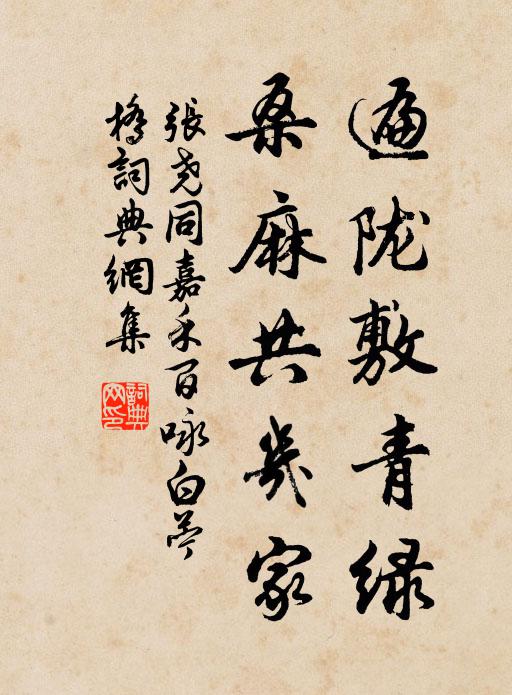 遍陇敷青绿
桑麻共幾家
張尧同嘉禾百咏白苎
橋詞典網集
詞典网印